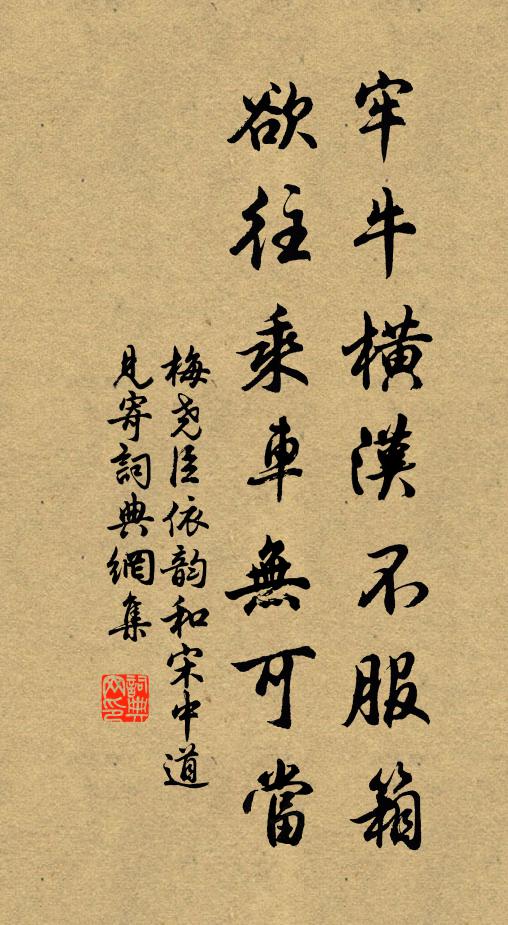 牢牛橫漢不服箱
欲往乘車無可當
梅堯臣依韵和宋中道
見寄詞典網集
詞典